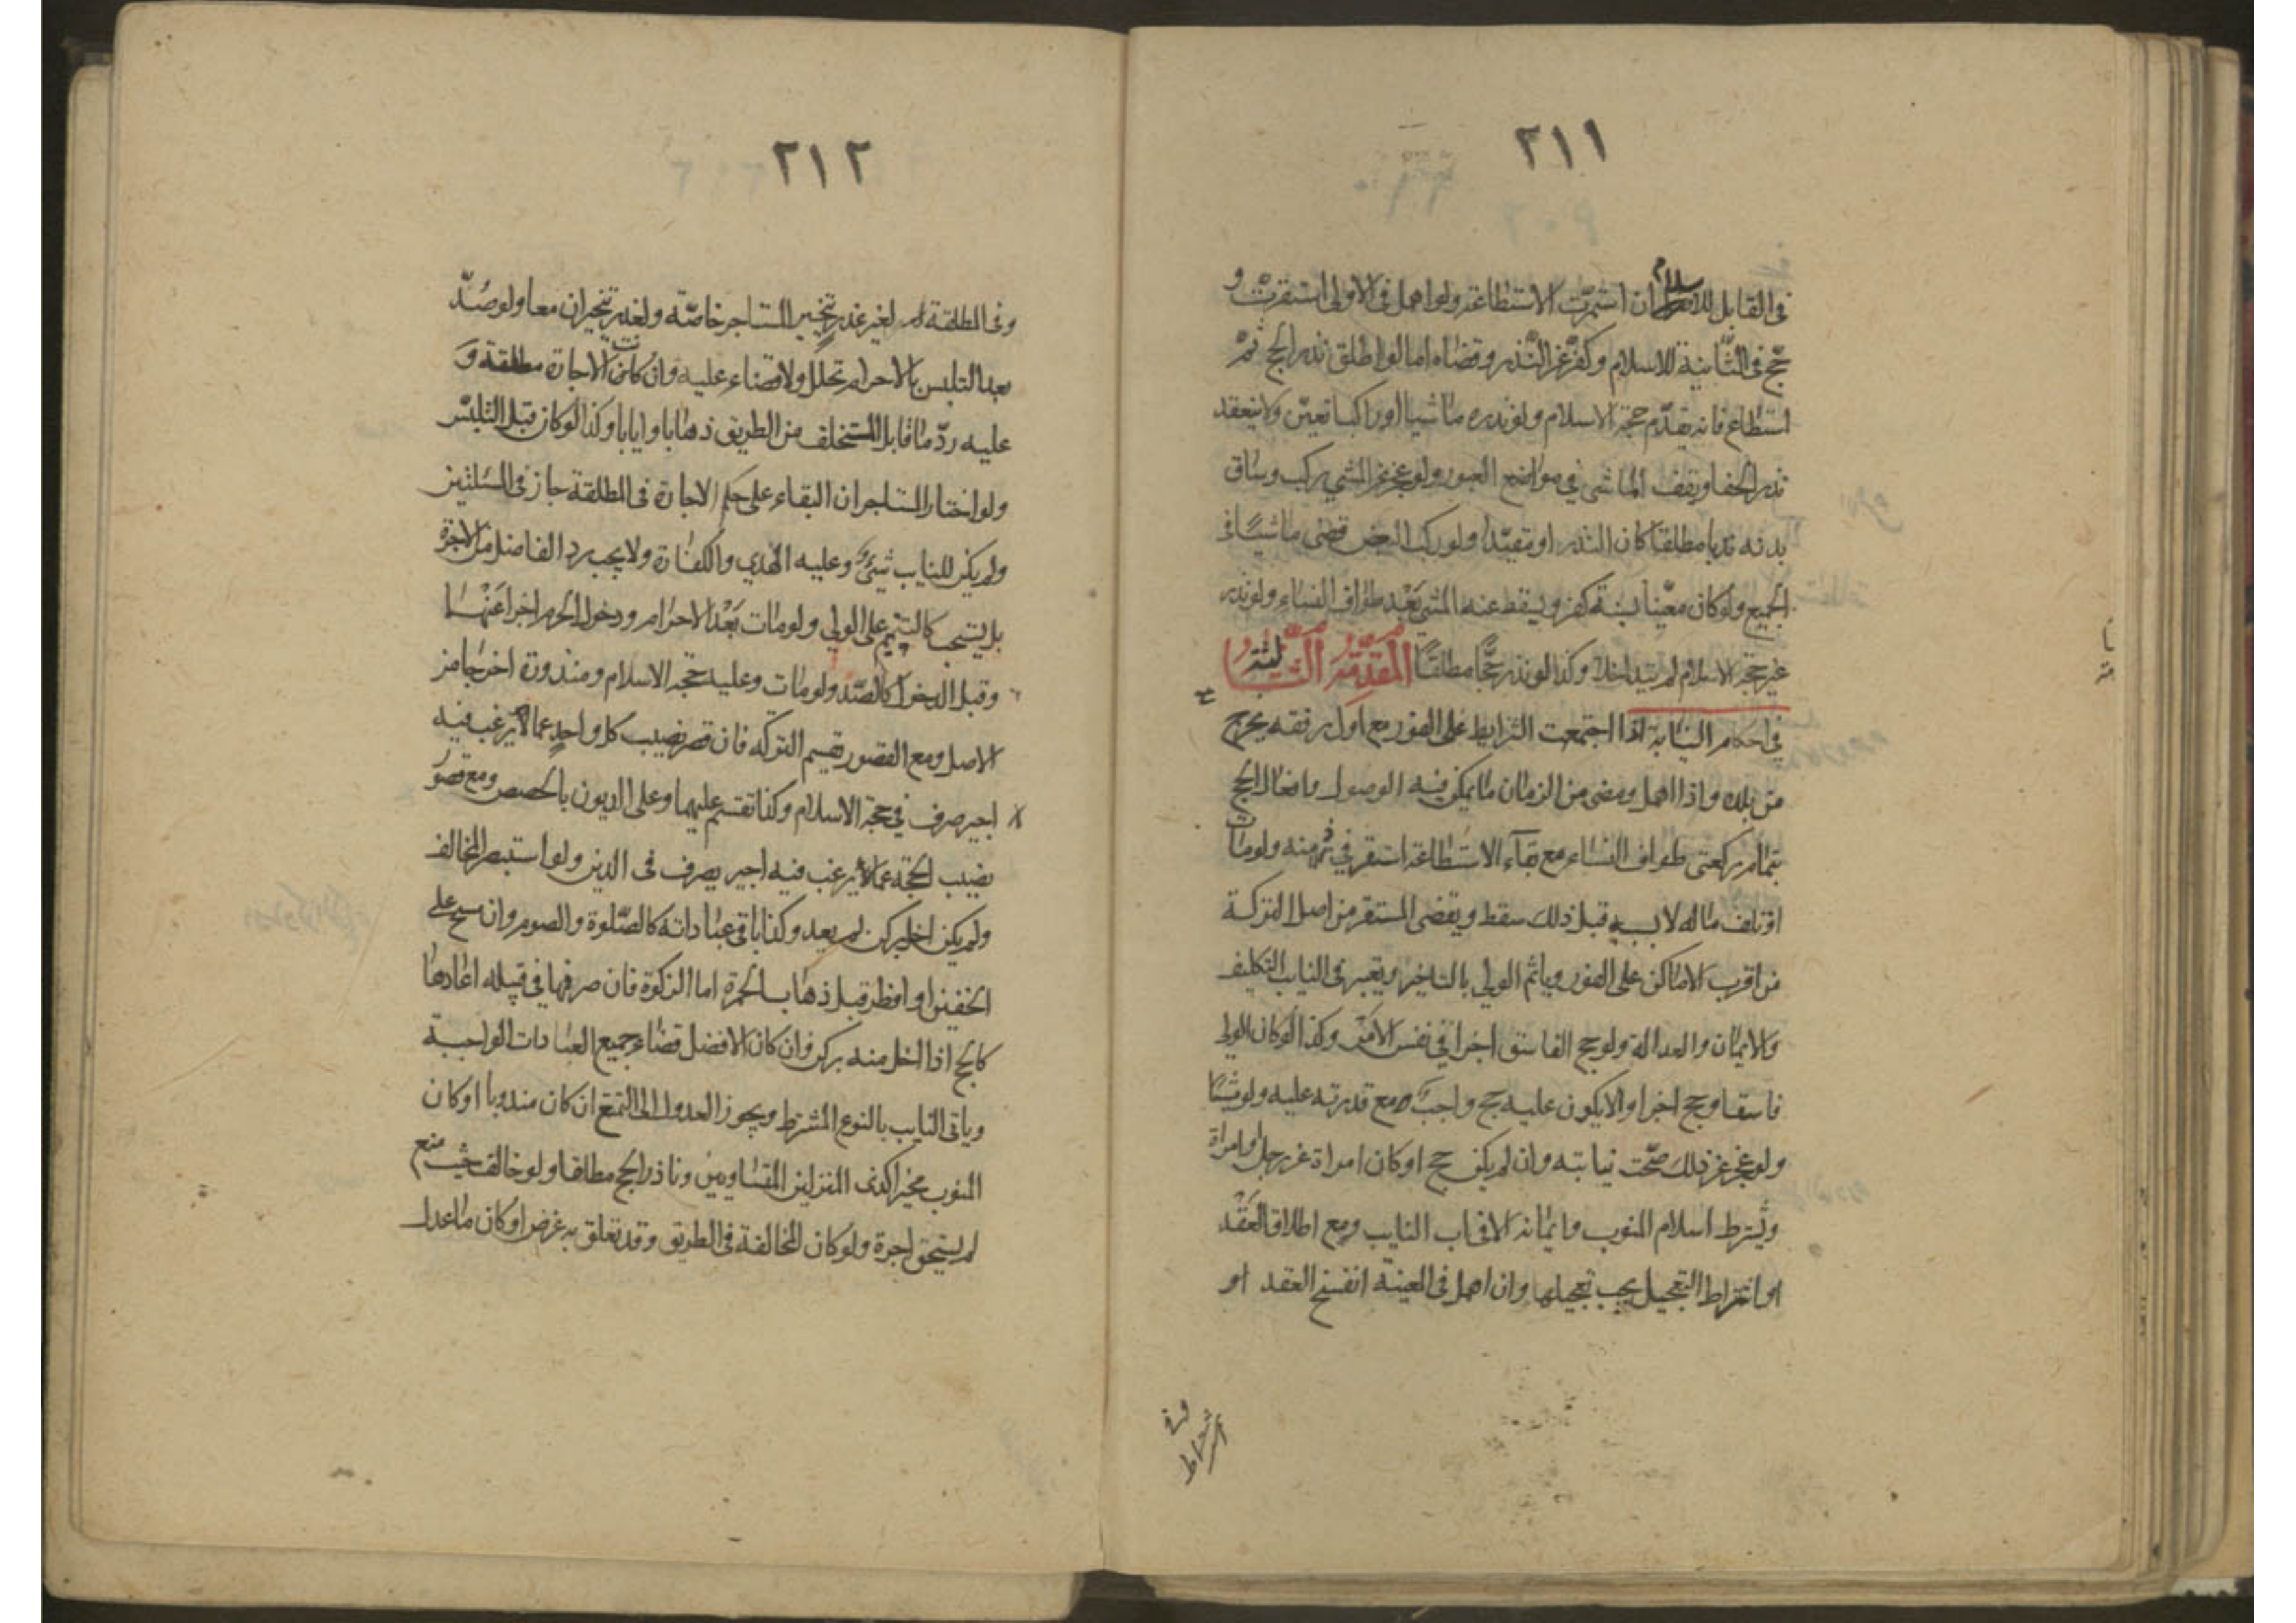 ٢١١
في القابل للاسلام ان استمرّت الاستطاعة ولو اهمل في الاولى استقرّت و
حجّ في الثانية للاسلام وكفّر عن النذر وقضاه اما لو اطلق نذر الحج ثمّ
استطاع فانه يقدّم حجة الاسلام ولو نذره ماشيا او راكبا تعيّن ولا ينعقد
نذر الحفا ويقف الماشي في مواضع العبور ولو عجز عن المشي ركب وساق
بدنه ندبا مطلقا كان النذر او مقيّدا ولو ركب البعض قضى ماشيًا في
الجميع ولو كان معيّنا بسنة كفّر ويسقط عنه المشي بَعْد طواف النساء ولو نذر
غير حجة الاسلام لم يتداخلا وكذا لو نذر حجًّا مطلقًا المقدّمة الثالثة
في احكام النيابة اذا اجتمعت الشرايط على الفور مع اول رفقه يخرج
من بلده واذا اهمل ومضى من الزمان ما يمكن فيه الوصول وافعال الحج
بتمام ركعتي طواف النساء مع بقآء الاستطاعة استقر في ذمته ولو مات
او تلف ماله لا بسببه قبل ذلك سقط ويقضى المستقر من اصل التركة
من اقرب الاماكن على الفور وياثم الولي بالتاخير ويعتبر في النايب التكليف
والايمان والعدالة ولو حج الفاسق اجزا في نفس الامر وكذا لو كان الولي
فاسقا وحج اجزا وان لا يكون عليه حج واجب مع قدرته عليه ولو مشيًا
ولو عجز عن ذلك صحّت نيابته وان لم يكن حج او كان امراة عن رجل او امراة
ويشترط اسلام المنوب وايمانه الا في اب النايب ومع اطلاق العَقْد
او اشتراط التعجيل يجب تعجيلها وان اهمل في المعينة انفسخ العقد او
٢١٢
وفى المطلقة ان لغير عذر تخيير المستاجر خاصّة ولعذر تخيران معا ولو صُدّ
بعد التلبس بالاحرام تحلل ولا قضاء عليه وان كانت الاجارة مطلقة وَ
عليه ردّ ما قابل المتخلف من الطريق ذهابا وايابا وكذا لو كان قبل التلبّس
ولو اختار المستاجر ان البقاء على حكم الاجارة في المطلقة جاز في المسئلتين
ولم يكن للنايب شيئ وعليه الهدي والكفارة ولا يجب رد الفاضل من الاجرة
بل يستحب كالتتميم على الولي ولو مات بَعْد الاحرام ودخول الحرم اجزا عَنْهُما
وقبل الدخول كالصّد ولو مات وعليه حجة الاسلام ومنذورة اخرجا من
الاصل ومع القصور تقسم التركه فان قصر نصيب كل واحدٍ عما لا يرغب فيه
اجير صرف في حجة الاسلام وكذا تقسم عليهما وعلى الديون بالحصص ومع قصور
نصيب الحجة عما لا يرغب فيه اجير يصرف فى الدين ولو استبصر المخالف
ولم يكن اخل بركن لم يعد وكذا باقي عباداته كالصّلوة والصوم وان مسح على
الخفين او افطر قبل ذهاب الحمرة اما الزكوة فان صرفها في قبيله اعادها
كالحج اذا اخل منه بركن وان كان الافضل قضاء جميع العبادات الواجبة
وياتى النايب بالنوع المشترط ويجوز العدول الى التمتع ان كان مندوبا او كان
المنوب مخيرا كذى المنزلين المتساويين وناذر الحج مطلقا ولو خالف حيث منع
لم يستحق اجرة ولو كان المخالفة في الطريق وقد تعلق به غرض او كان ما عدل